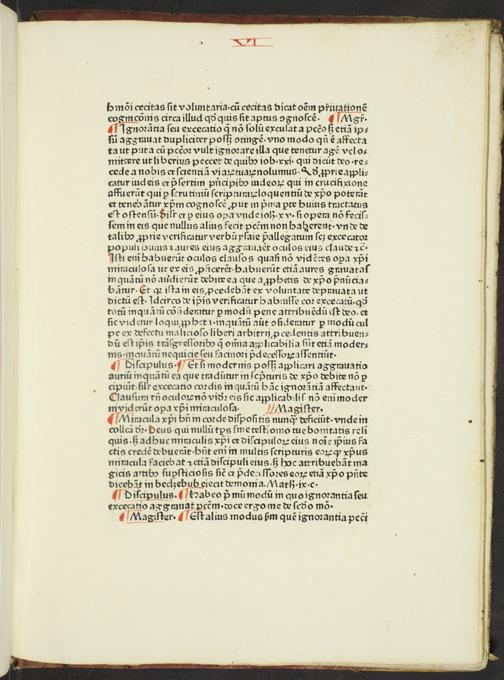 VI
hmōi cecitas sit volūtaria·cū cecitas dicat oēm p̄riuationē
cognicōnis circa illud qd̄ quis sit aptus ognoscē· ¶ Mgr̄·
¶ Ignorātia seu excecatio q̄ nō solū excusat a pctō sꝫ etiā ip̄
sū aggrauat dupliciter possꝫ otingē· vno modo qn̄ ē affecta
ta ut puta cū pctōr vult ignorare illa que tenetur agē vel o-
mittere ut liberius peccet de quibꝰ iob·xxi·qui dicūt deo re-
cede a nobis et scientiā viarꝫ tuarꝫ nolumus· p̄prie appli-
catur iudeis et p̄sertim p̄ncipibꝰ indeorꝫ qui in crucifixione
affuerūt qui p̄ scrutiniū scripturarꝫ loquentiū de xp̄o poterāt
et tenebātur xp̄m cognoscē· put in p̄ma pte huius tractatus
est ostensū· Silr̄ et p̄ eius opa vnde ioh̄·xv·si opera nō fecis-
sem in eis que nullus alius fecit pctm̄ non haberent·vnde de
talibꝰ p̄prie verificatur verbū ysaie p̄allegatum scꝫ excecatoꝫ
populi huius ⁊ aures eius aggrauāt oculos eius claude ⁊c̄·
Isti eni habuerūt oculos clausos quasi nō vidētes opa xp̄i
miraculosa ut ex eis p̄ficerēt·habuerūt etiā aures grauatas
inquantū nō audierūt debite ea que a p̄phetis de xp̄o p̄nūcia
bātur· Et qꝫ ista in eis p̄cedebāt ex voluntate deprauata ut
dictū est· Idcirco de ip̄is verificatur habuisse cor excecatū·qd̄
totū inquātū cōsideratur p̄ modū pene attribuēdū est deo·et
sic videtur loqui p̄phēt· inquātū aūt osideratur p̄ modū cul
pe ex defectu maliciose liberi arbitrii p̄cedentis attribuen-
dū est ip̄is trāsgressoribꝰ q̄ omīa applicabilia sūt etiā moder-
nis inquātū nequicie seu facinori p̄decessorꝫ assentiūt·
¶ Discipulus· ¶ Et si modernis possꝫ applicari aggrauatio
auriū inquātū ea que tradūtur in sc̄pturis de xp̄o debite nō p̄
cipiūt·silr̄ excecatio cordis inquātū hāc ignorātiā affectant·
Clausura tn̄ oculorꝫ nō videtur eis sic applicabilis nō eni moder
ni viderūt opa xp̄i miraculosa· ¶ Magister·
¶ Miracula xp̄i bn̄ in corde dispositis nunqꝫ deficiūt·vnde in
collcā dr̄· Deus qui nullū tps̄ sine testimonio tue bonitatis reli
quis·sꝫ adhuc miraculis xp̄i et discipulorꝫ eius noīe ip̄ius fa
ctis credē debuerāt·hn̄t eni in multis scripturis eorꝫ qꝫ xp̄us
miracula faciebat ⁊ etiā discipuli eius·sꝫ hoc attribuebāt ma
gicis artibꝰ supsticiosis sic et p̄decessores eorꝫ etiā xp̄o p̄nte
dicebāt in beelsebub eiecit demonia·Math·ix·c·
¶ Discipulus· ¶ Habeo p̄mū modū in quo ignorantia seu
excecatio aggrauat pctm̄·doce ergo me de scd̄o mō·
¶ Magister· ¶ Est alius modus scd̄m quē ignorantia pctī